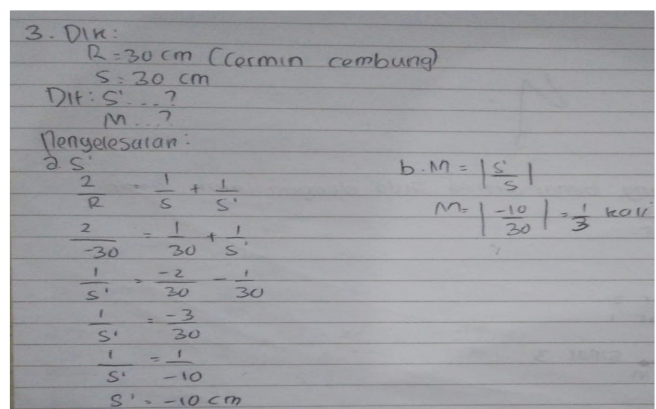 3. DIK:
R = 30 cm (Cermin cembung)
S = 30 cm
Dit: S' ...?
M ...?
Penyelesaian:
a S'
2/R = 1/S + 1/S'
2/-30 = 1/30 + 1/S'
1/S' = -2/30 - 1/30
1/S' = -3/30
1/S' = 1/-10
S' = -10 cm
b. M = |S'/S|
M = |-10/30| = 1/3 kali